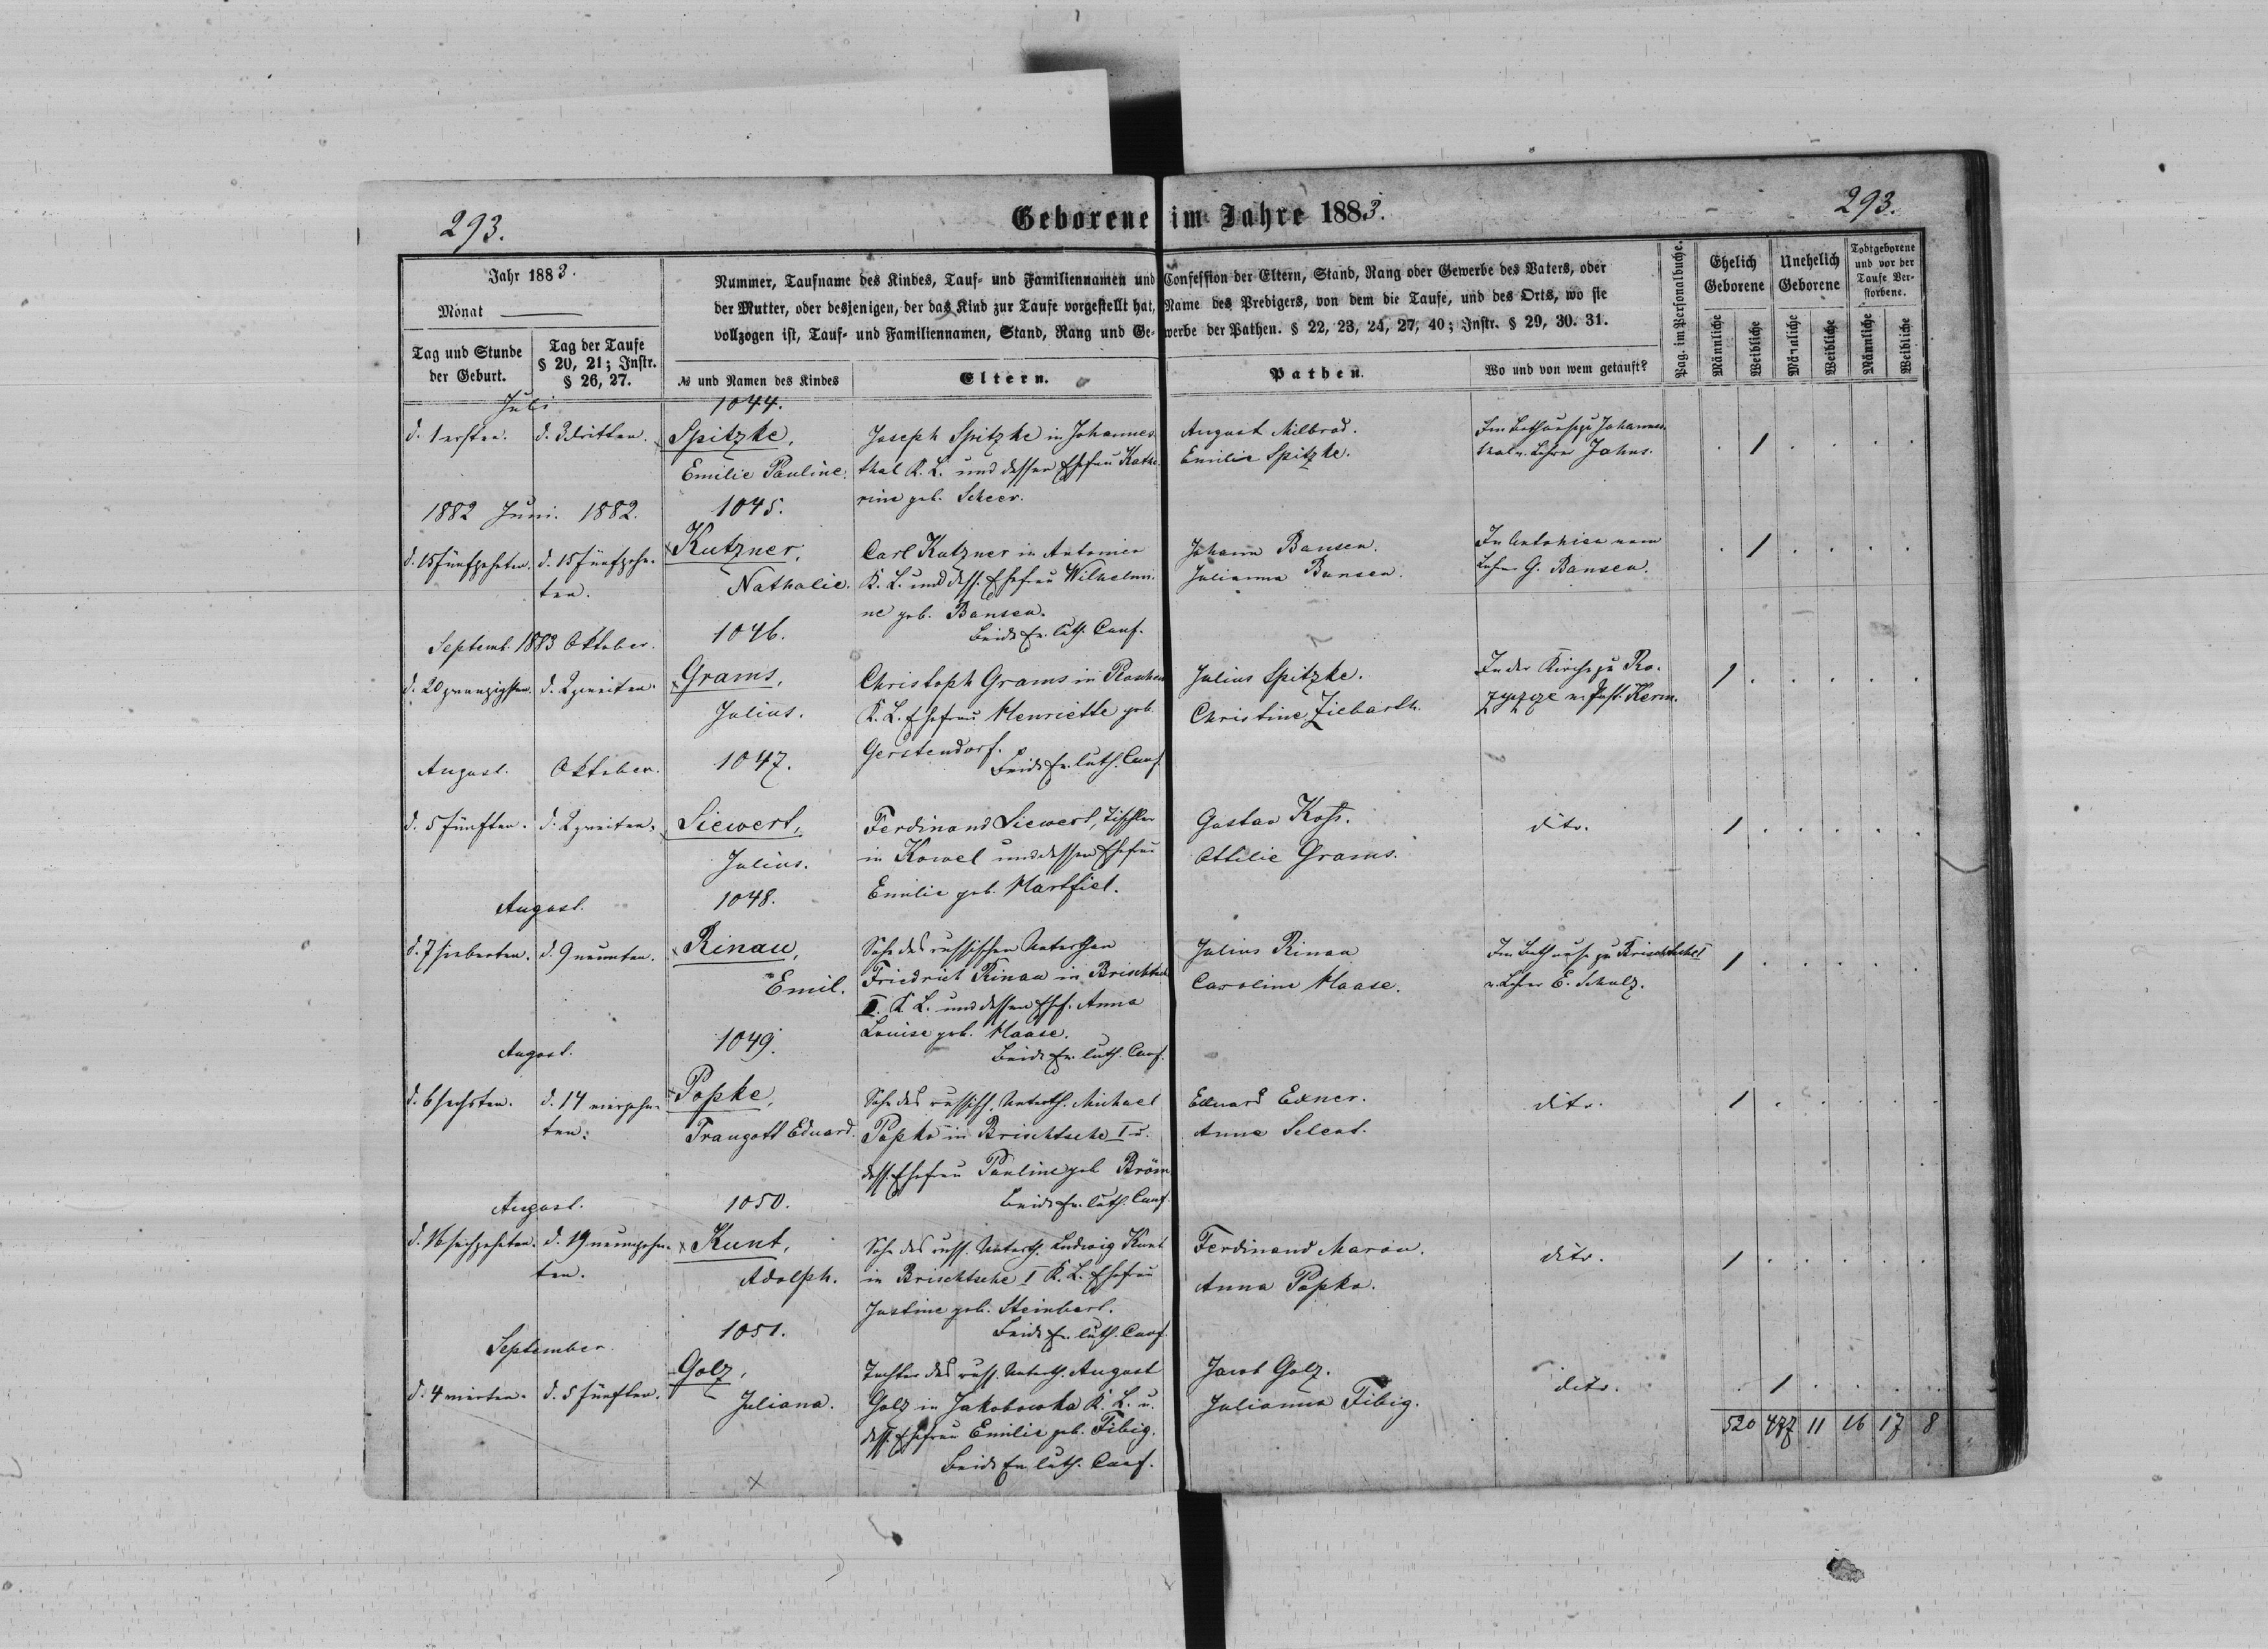 293.
Geborene im Jahre 1883.
293.
Jahr 1883.
Monat
Tag und Stunde der Geburt.
Tag der Taufe § 20, 21; Instr. § 26, 27.
Nummer, Taufname des Kindes, Tauf- und Familiennamen und Confession der Eltern, Stand, Rang oder Gewerbe des Vaters, oder
der Mutter, oder desjenigen, der das Kind zur Taufe vorgestellt hat, Name des Predigers, von dem die Taufe, und des Orts, wo sie
vollzogen ist, Tauf- und Familiennamen, Stand, Rang und Gewerbe der Pathen. § 22, 23, 24, 27, 40; Instr. § 29, 30. 31.
№ und Namen des Kindes
Eltern.
Pathen.
Wo und von wem getauft?
Pag. im Personalbuche.
Ehelich Geborene
Unehelich Geborene
Todtgeborene und vor der Taufe Verstorbene.
Männliche
Weibliche
Männliche
Weibliche
Männliche
Weibliche
Juli
1044.
d. 1 ersten.
d. 3 dritten.
Spitzke,
Emilie Pauline.
Joseph Spitzke in Johannes-
thal K. L. und dessen Ehefrau Kathe-
rine geb. Scheer.
August Milbrod.
Emilie Spitzke.
Im Bethause zu Johannes-
thal v. Lehrer Jahns.
1
1882 Juni. 1882.
1045.
d. 15 fünfzehnten.
d. 15 fünfzehn-
ten.
Kutzner,
Nathalie.
Carl Kutzner in Antonien
K. L. und dess. Ehefrau Wilhelmi-
ne geb. Bansen.
Beide Ev. luth. Conf.
Johann Bansen.
Julianna Bansen.
In Antonien vom
Lehrer G. Bansen.
1
Septemb. 1883 Oktober.
1046.
d. 20 zwanzigsten.
d. 2 zweiten.
Grams,
Julius.
Christoph Grams in
K. L. Ehefrau Henriette geb.
Gerstendorf.
Beide Ev. luth. Conf.
Julius Spitzke.
Christine Zielbarth.
In der Kirche zu Ro-
zyszcze v. Past. Kerm.
1
August.
Oktober.
1047.
d. 5 fünften.
d. 2 zweiten.
Siewert,
Julius.
Ferdinand Siewert, Tischler
in Kowel und dessen Ehefrau
Emilie geb. Hartfiel.
Gustav Koss.
Ottilie Grams.
dito.
1
August.
1048.
d. 7 siebenten.
d. 9 neunten.
Rinau,
Emil.
Sohn des russischen Unterthan
Friedrich Rinau in Brischtsche
II. K. L. und dessen Ehef. Anna
Louise geb. Haase.
Beide Ev. luth. Conf.
Julius Rinau
Caroline Haase.
Im Bethause zu Brischtsche I
v. Lehrer E. Schulz.
1
August.
1049.
d. 6 sechsten.
d. 14 vierzehn-
ten.
Popke,
Traugott Eduard.
Sohn des russisch. Unterth. Michael
Popke in Brischtsche I u.
dess. Ehefrau Pauline geb. Bröm
Beide Ev. luth. Conf.
Eduard Exner.
Anna Selent.
dito.
1
August.
1050.
d. 16 sechzehnten.
d. 19 neunzehn-
ten.
Kunt,
Adolph.
Sohn des russ. Unterth. Ludwig Kunt
in Brischtsche I K. L. Ehefrau
Justine geb. Steinbart.
Beide Ev. luth. Conf.
Ferdinand Maron.
Anna Popko.
dito.
1
September.
1051.
d. 4 vierten.
d. 5 fünften.
Golz,
Juliana.
Tochter des russ. Unterth. August
Golz in Jakobowka K. L. u.
dess. Ehefrau Emilie geb. Fibig.
Beide Ev. luth. Conf.
Jacob Golz.
Julianna Fibig.
dito.
1
520 477 11 16 17 8